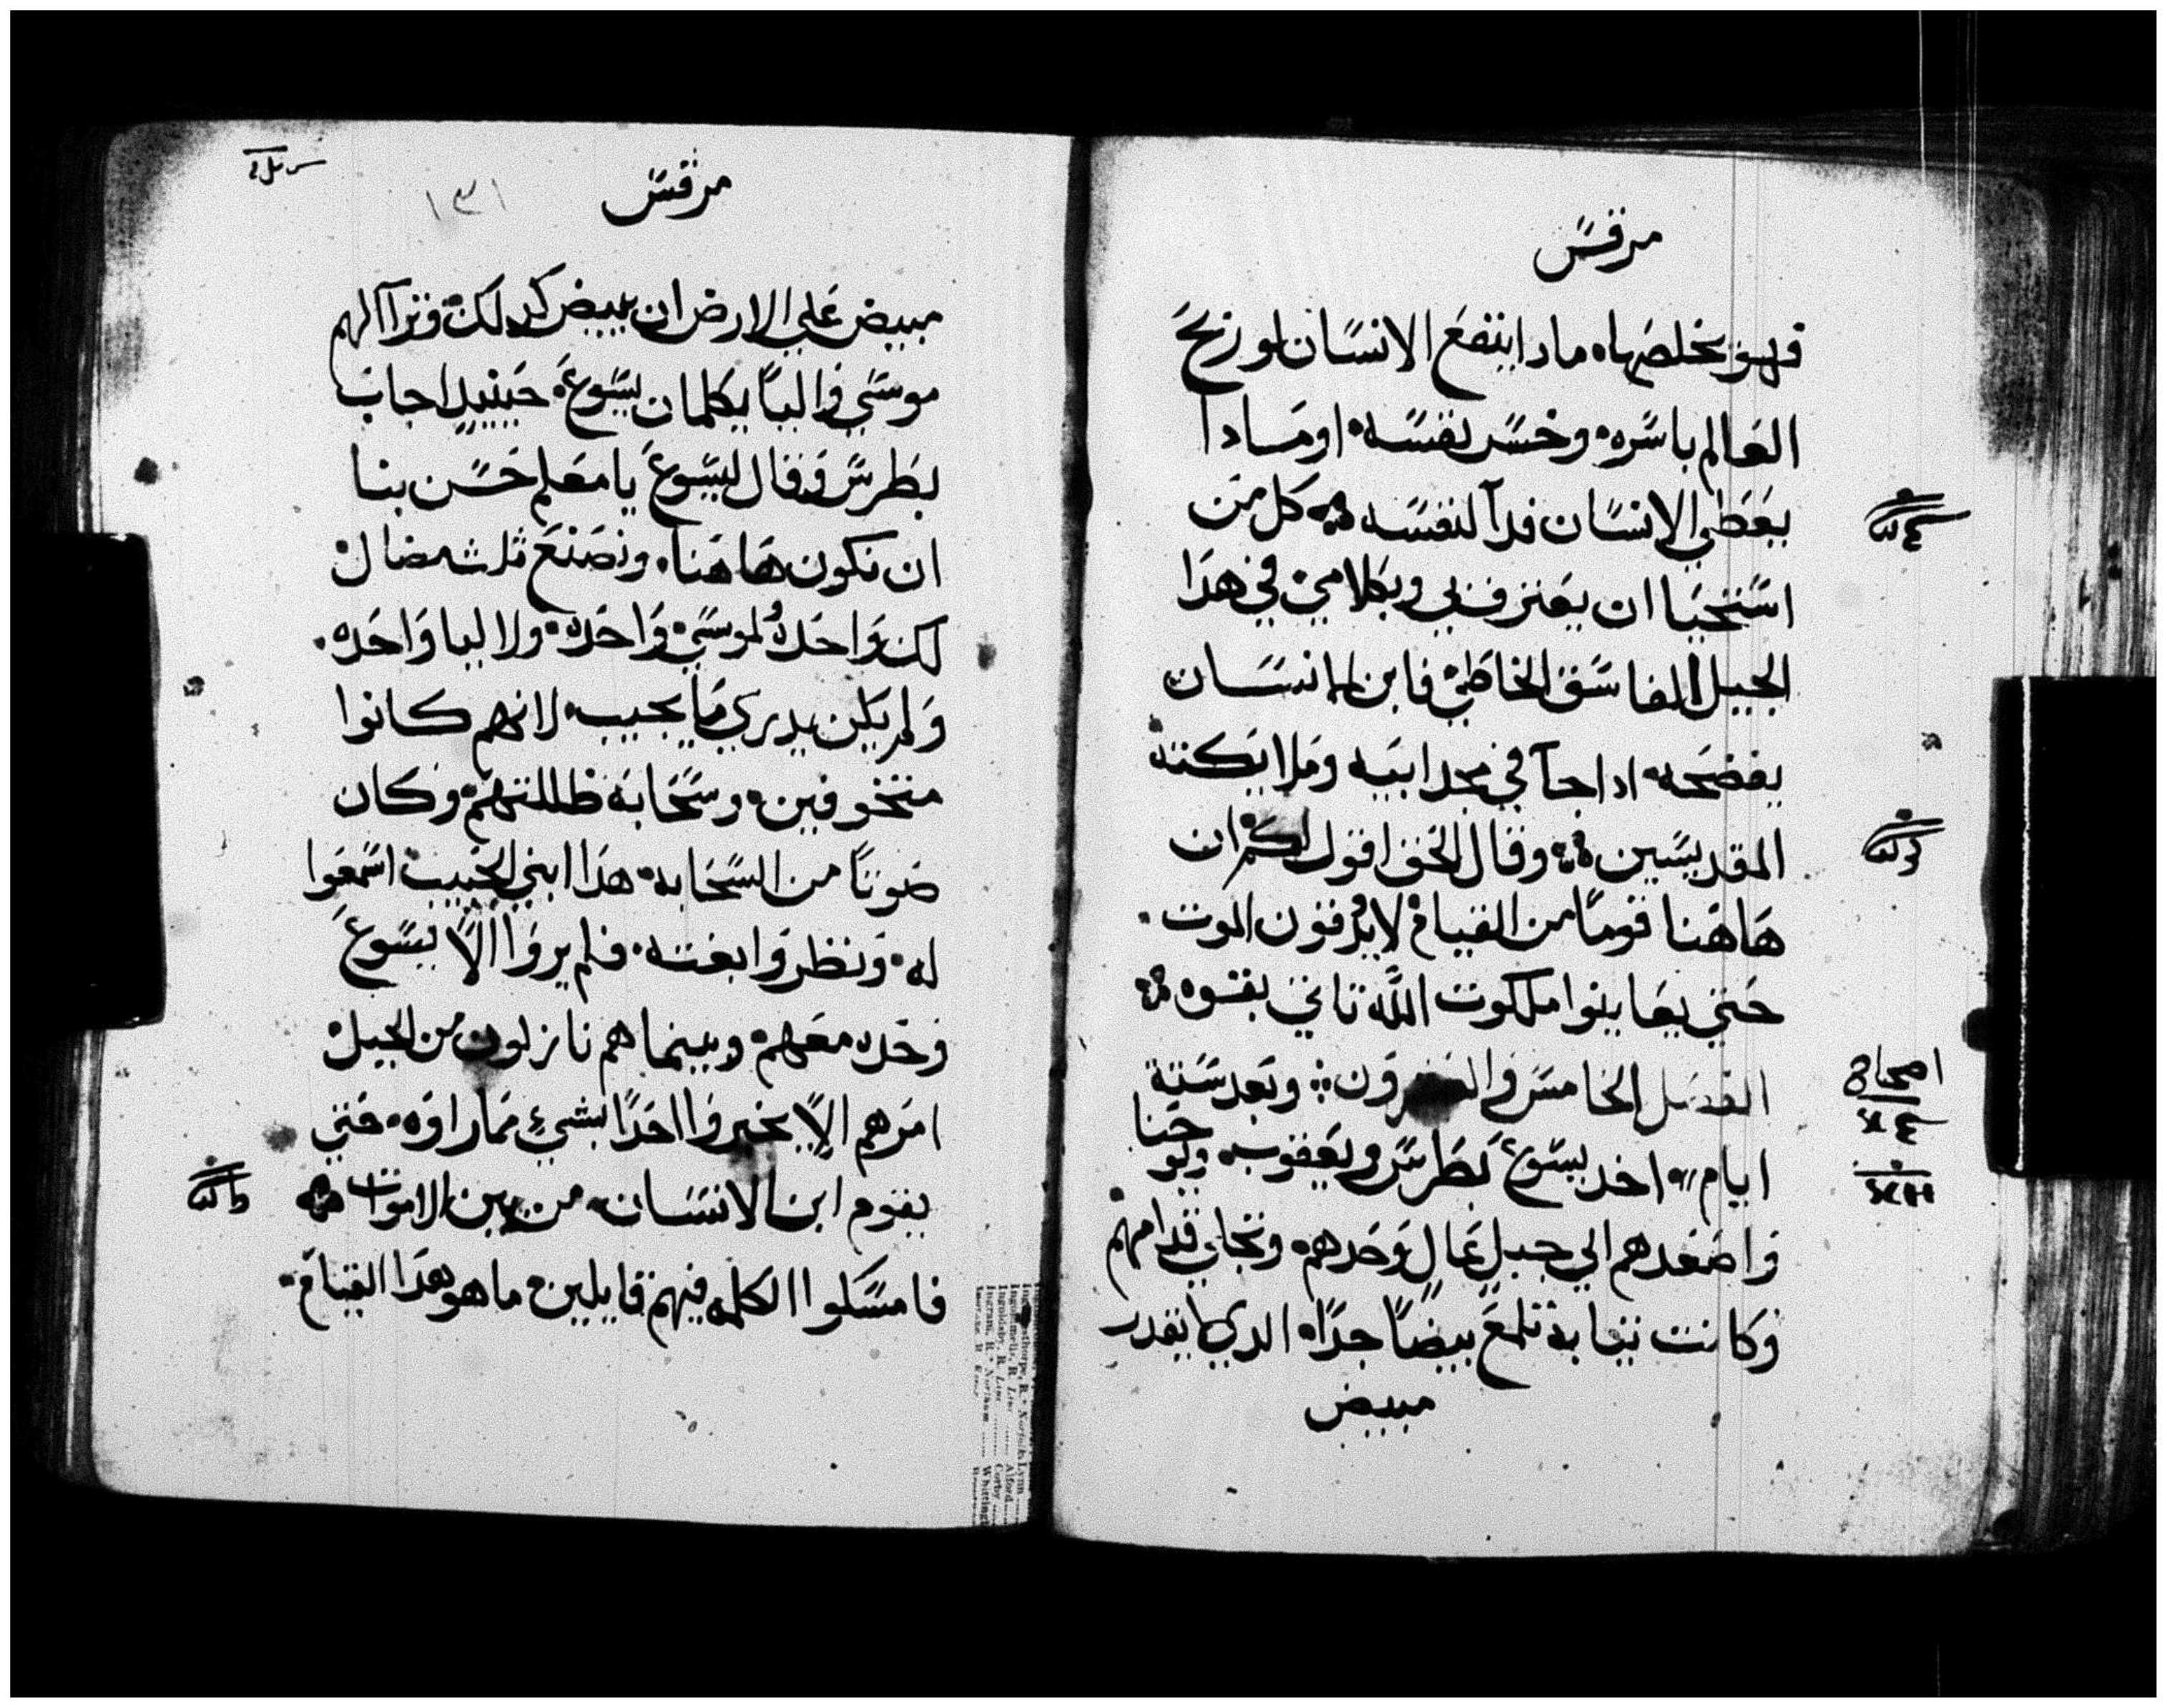 مرقس
فهو يخلصها ماذا ينتفع الانسان لو ربح
العالم باسره وخسر نفسه او مادا
يعطي الانسان فدآ لنفسه كل من
استحيا ان يعترف بي وبكلامي في هدا
الجيل الفاسق الخاطي فابن الانسان
يفضحه ادا جآ في مجد ابيه وملايكته
المقديسين وقال الحق اقول لكم ان
هاهنا قوما من القيام لا يدوقون الموت
حتي يعاينوا ملكوت الله تاتي بقوه
الفصل الخامس والعشرون وبعد ستة
ايام اخد يسوع بطرس ويعقوب ويوحنا
واصعدهم الي جبل عال وحدهم وتجلي قدامهم
وكانت ثيابه تلمع بيضا جدا الدي لا يقدر
مبيض
اصحاح
مرقس
١٣١
مبيض علي الارض ان يبيض كدلك وترآ الهم
موسي واليا يكلمان يسوع حينيد اجاب
بطرس وقال ليسوع يا معلم حسن بنا
ان نكون هاهنا ونصنع ثلث مضال
لك واحده لموسي واحده ولاليا واحده
ولم يكن يدري ما يجيب لانهم كانوا
متخوفين وسحابة ظللتهم وكان
صوتا من السحابه هدا ابني الحبيب اسمعوا
له ونظروا بغته فلم يروا الا يسوع
وحده معهم وبينما هم نازلون من الجبل
امرهم الا يخبروا احدا بشيء مما راوه حتي
يقوم ابن الانسان من بين الاموات
فامسكوا الكلمه فيهم قايلين ما هو هدا القيام